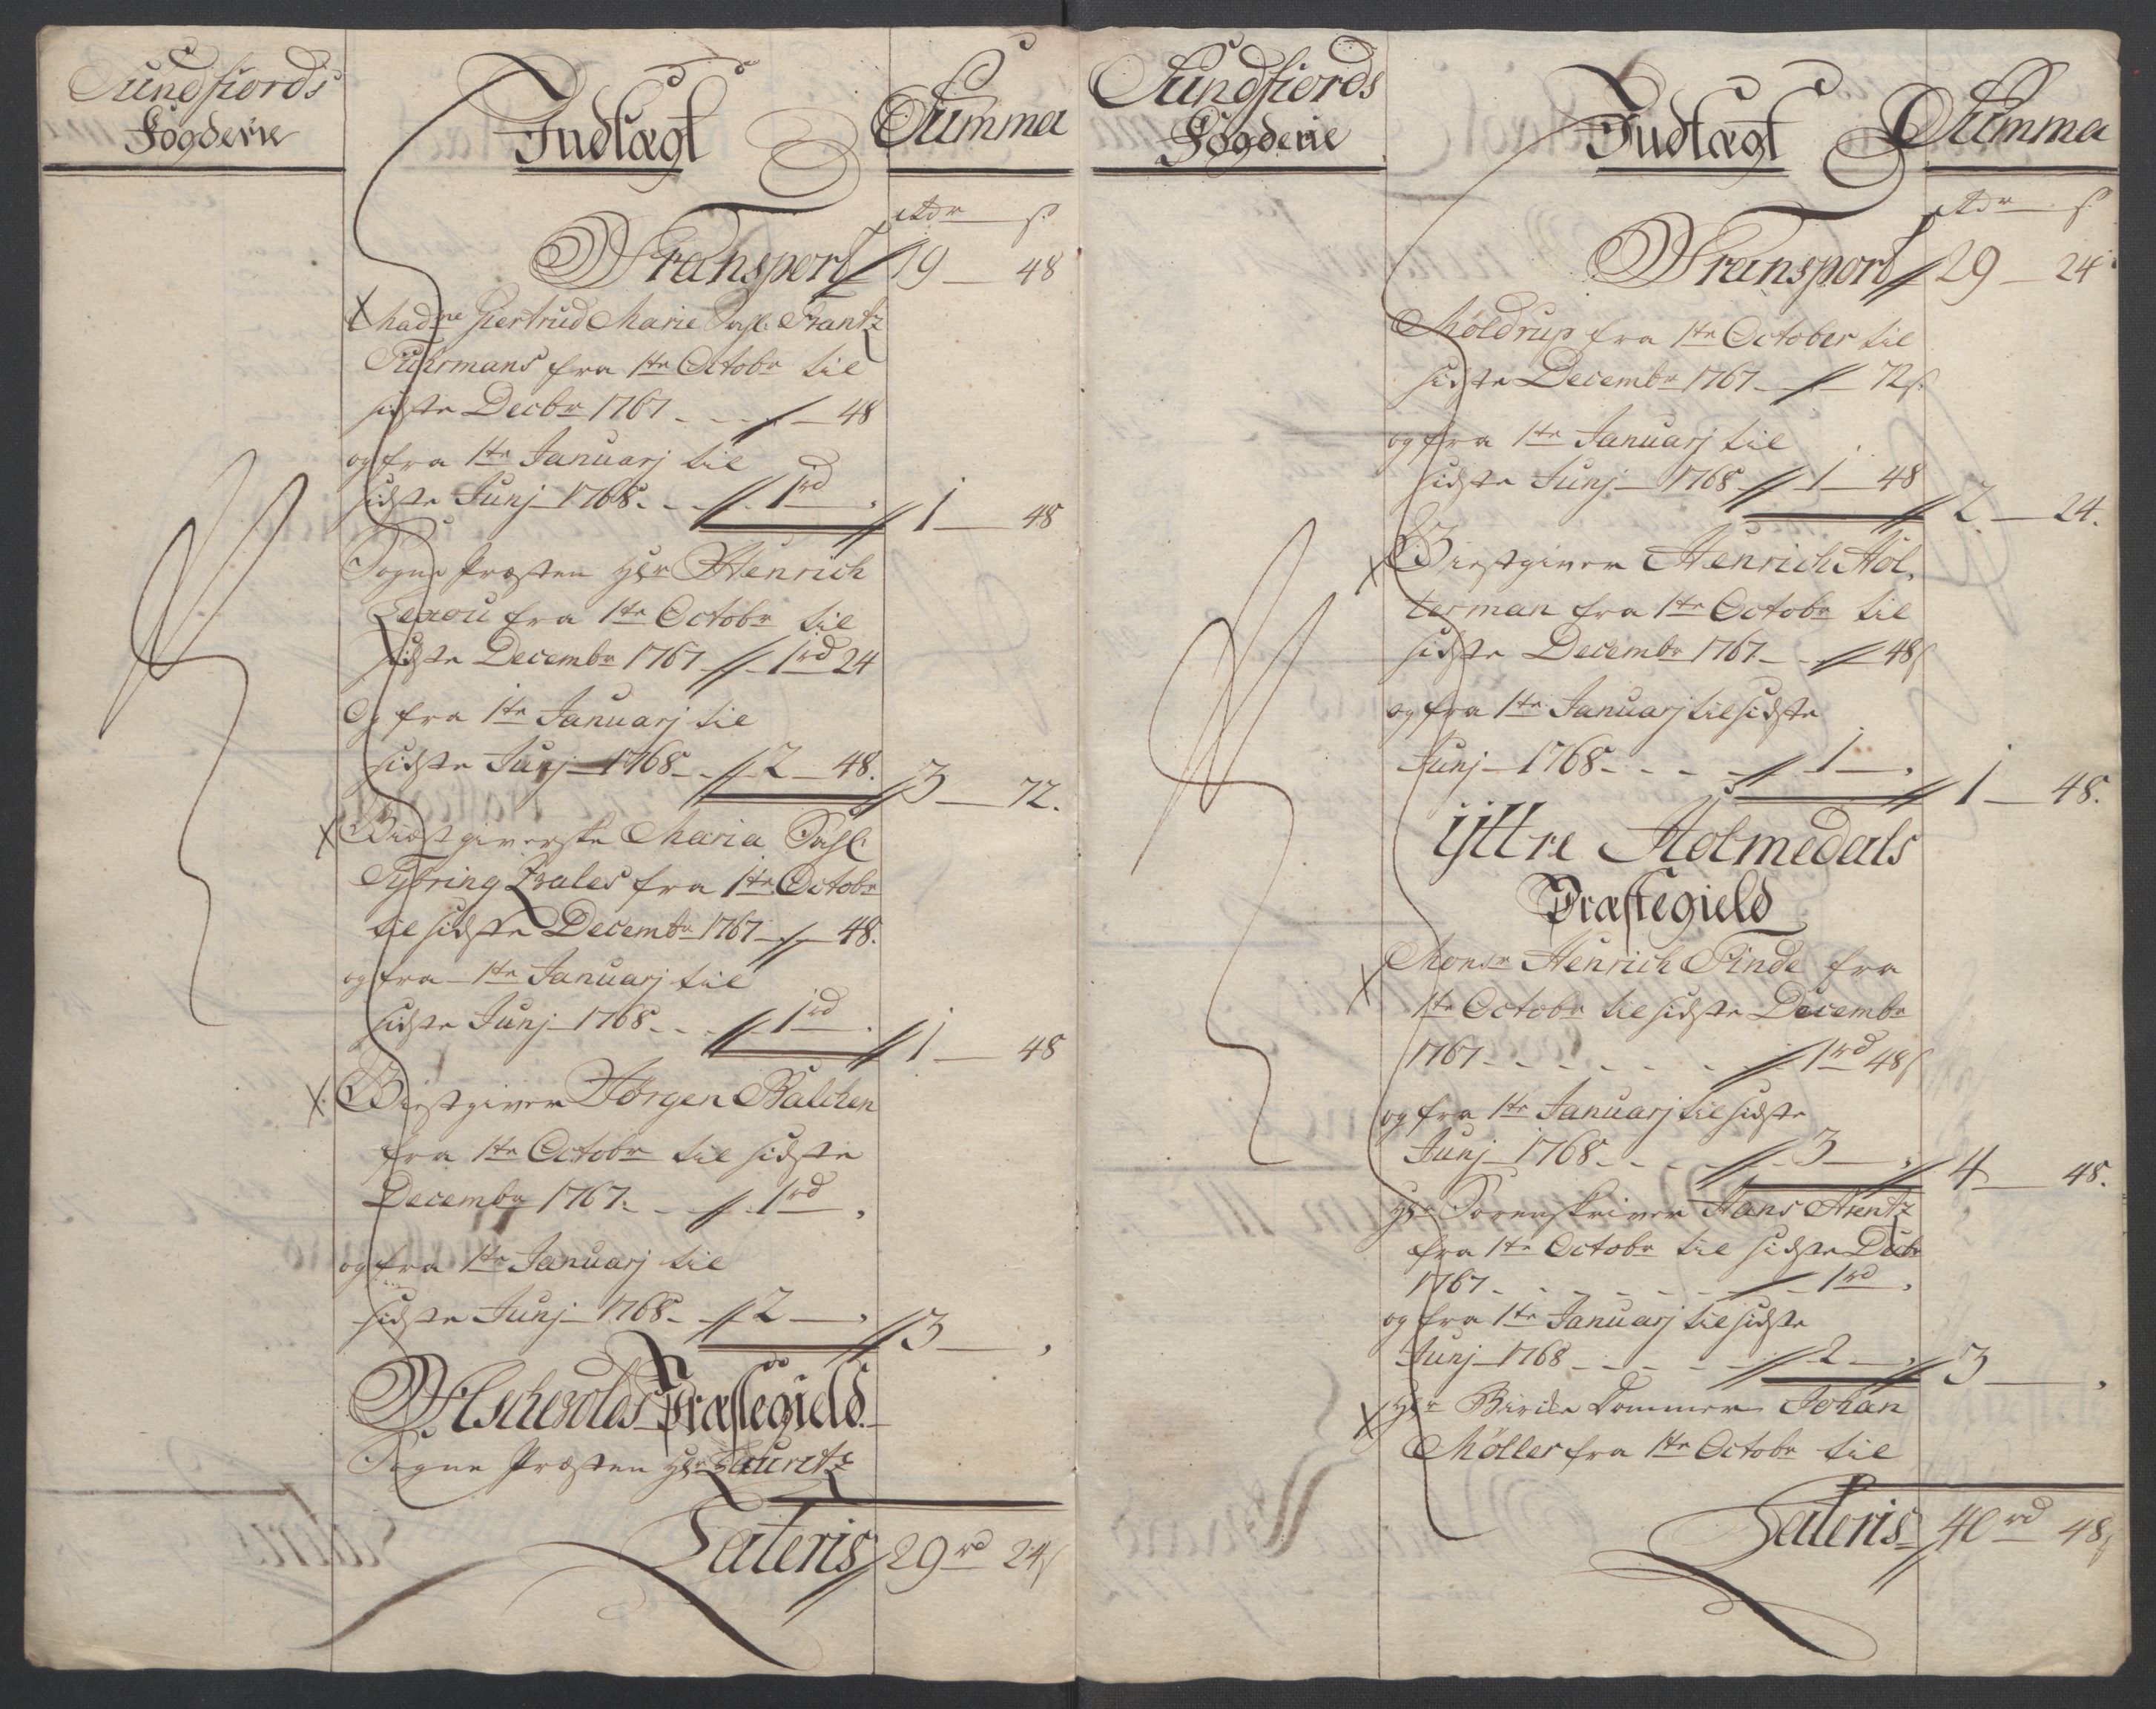 Sundfiords
Fogderie
Indtægt
Summa
Rdr ß
Transport 19 — 48
Madme Giertrud Marie Sahl. Frantz
Fuhrmans fra 1te Octobr til
sidste Decbr 1767 - - 48
og fra 1te Januarj til
sidste Junj 1768 - - 1rd
1 — 48
Sogne Præsten Hr Henrich
Lexou fra 1te Octobr til
sidste Decembr 1767 1rd 24
Og fra 1te Januarj til
sidste Junj 1768 - 2 — 48.
3 — 72.
Giæstgiverske Maria Sahl.
Tybring fra 1te Octobr
til sidste Decembr 1767 - 48.
og fra 1te Januarj til
sidste Junj 1768 - - 1rd
1 — 48
Giestgiver Jørgen Balchen
fra 1te Octobr til sidste
Decembr 1767. - 1rd
og fra 1te Januarj til
sidste Junj 1768 - 2 —
3 —
Aschevolds Præstegield.
Sogne Præsten Hr Lauritz
Lateris 29rd 24ß
Sundfiords
Fogderie
Indtægt
Summa
Rdr ß
Transport 29 — 24
Moldrup fra 1te October til
sidste Decembr 1767 - 72ß.
og fra 1te Januarj til
sidste Junj 1768 - 1 — 48
2 — 24.
Giestgiver Henrich Hol-
terman fra 1te Octobr til
sidste Decembr 1767 - - 48ß
og fra 1te Januarj til sidste
Junj 1768 - - - - 1 —
1 — 48.
Ÿttre Holmedals
Præstegield
Monsr Henrich Finde fra
1te Octobr til sidste Decembr
1767 - - - - - - 1rd 48ß
og fra 1te Januarj til sidste
Junj 1768 - - - - 3 —
4 — 48.
Hr Sorenskriver Hans Arentz
fra 1te Octobr til sidste Decbr
1767 - - - - - - 1rd
og fra 1te Januarj til sidste
Junj 1768 - - - - - 2 —
3 —
Hr Birke Dommer Johan
Möller fra 1te Octobr til
Lateris 40rd 48ß